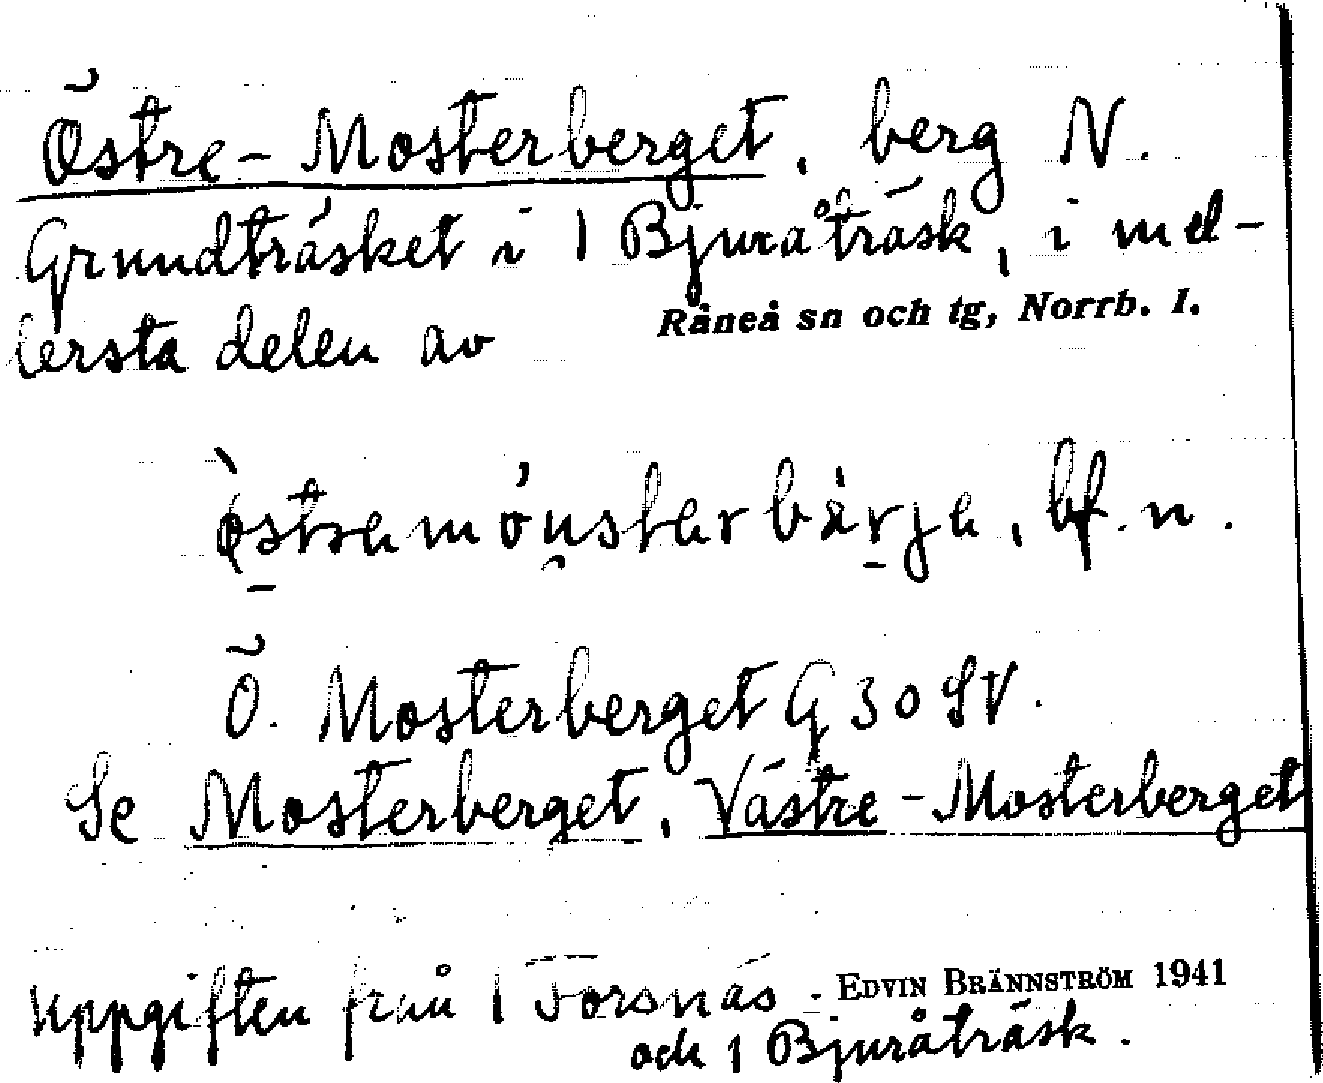 Östre-Mosterberget, berg N.
Grundträsket i 1 Bjuråträsk, i mel-
lersta delen av Råneå sn och tg, Norrb. l.
östremónsterbärje, bf. n.
Ö. Mosterberget G 30 SV.
Se Mosterberget, Västre-Mosterberget
uppgiften från 1 Forsnäs. EDVIN BRÄNNSTRÖM 1941
och 1 Bjuråträsk.